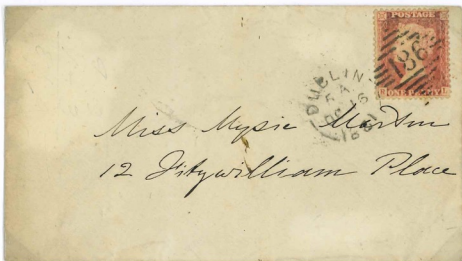 POSTAGE
186
ONE PENNY
DUBLIN
Miss Mysie Martin
12 Fitzwilliam Place